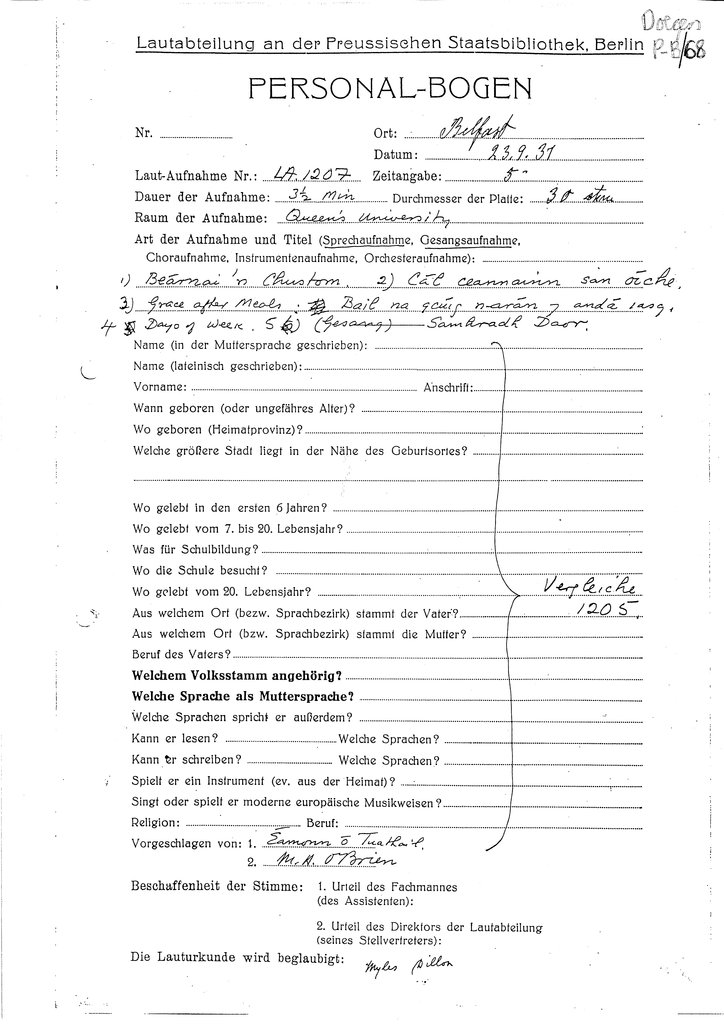 Doegen
P-B/68
Lautabteilung an der Preussischen Staatsbibliothek, Berlin
PERSONAL-BOGEN
Nr.
Ort: Belfast
Datum: 23.9.31
Laut-Aufnahme Nr.: LA. 1207 Zeitangabe: 5
Dauer der Aufnahme: 3½ Min Durchmesser der Platte: 30
Raum der Aufnahme: Queen's University
Art der Aufnahme und Titel (Sprechaufnahme, Gesangsaufnahme,
Choraufnahme, Instrumentenaufnahme, Orchesteraufnahme):
1) Beárnai 'n Chustom. 2) Cál ceannainn san oíche.
3) Grace after Meals: Bail na gcúig n-arán 7 an dá iasg.
4 Days of Week. 5 (Gesang) — Samhradh Daor.
Name (in der Muttersprache geschrieben):
Name (lateinisch geschrieben):
Vorname: Anschrift:
Wann geboren (oder ungefähres Alter)?
Wo geboren (Heimatprovinz)?
Welche größere Stadt liegt in der Nähe des Geburtsortes?
Wo gelebt in den ersten 6 Jahren?
Wo gelebt vom 7. bis 20. Lebensjahr?
Was für Schulbildung?
Wo die Schule besucht?
Wo gelebt vom 20. Lebensjahr? Vergleiche
Aus welchem Ort (bezw. Sprachbezirk) stammt der Vater? 1205.
Aus welchem Ort (bzw. Sprachbezirk) stammt die Mutter?
Beruf des Vaters?
Welchem Volksstamm angehörig?
Welche Sprache als Muttersprache?
Welche Sprachen spricht er außerdem?
Kann er lesen? Welche Sprachen?
Kann er schreiben? Welche Sprachen?
Spielt er ein Instrument (ev. aus der Heimat)?
Singt oder spielt er moderne europäische Musikweisen?
Religion: Beruf:
Vorgeschlagen von: 1. Éamonn ó Tuathail.
2. M. A. O'Brien
Beschaffenheit der Stimme: 1. Urteil des Fachmannes
(des Assistenten):
2. Urteil des Direktors der Lautabteilung
(seines Stellvertreters):
Die Lauturkunde wird beglaubigt: Myles Dillon